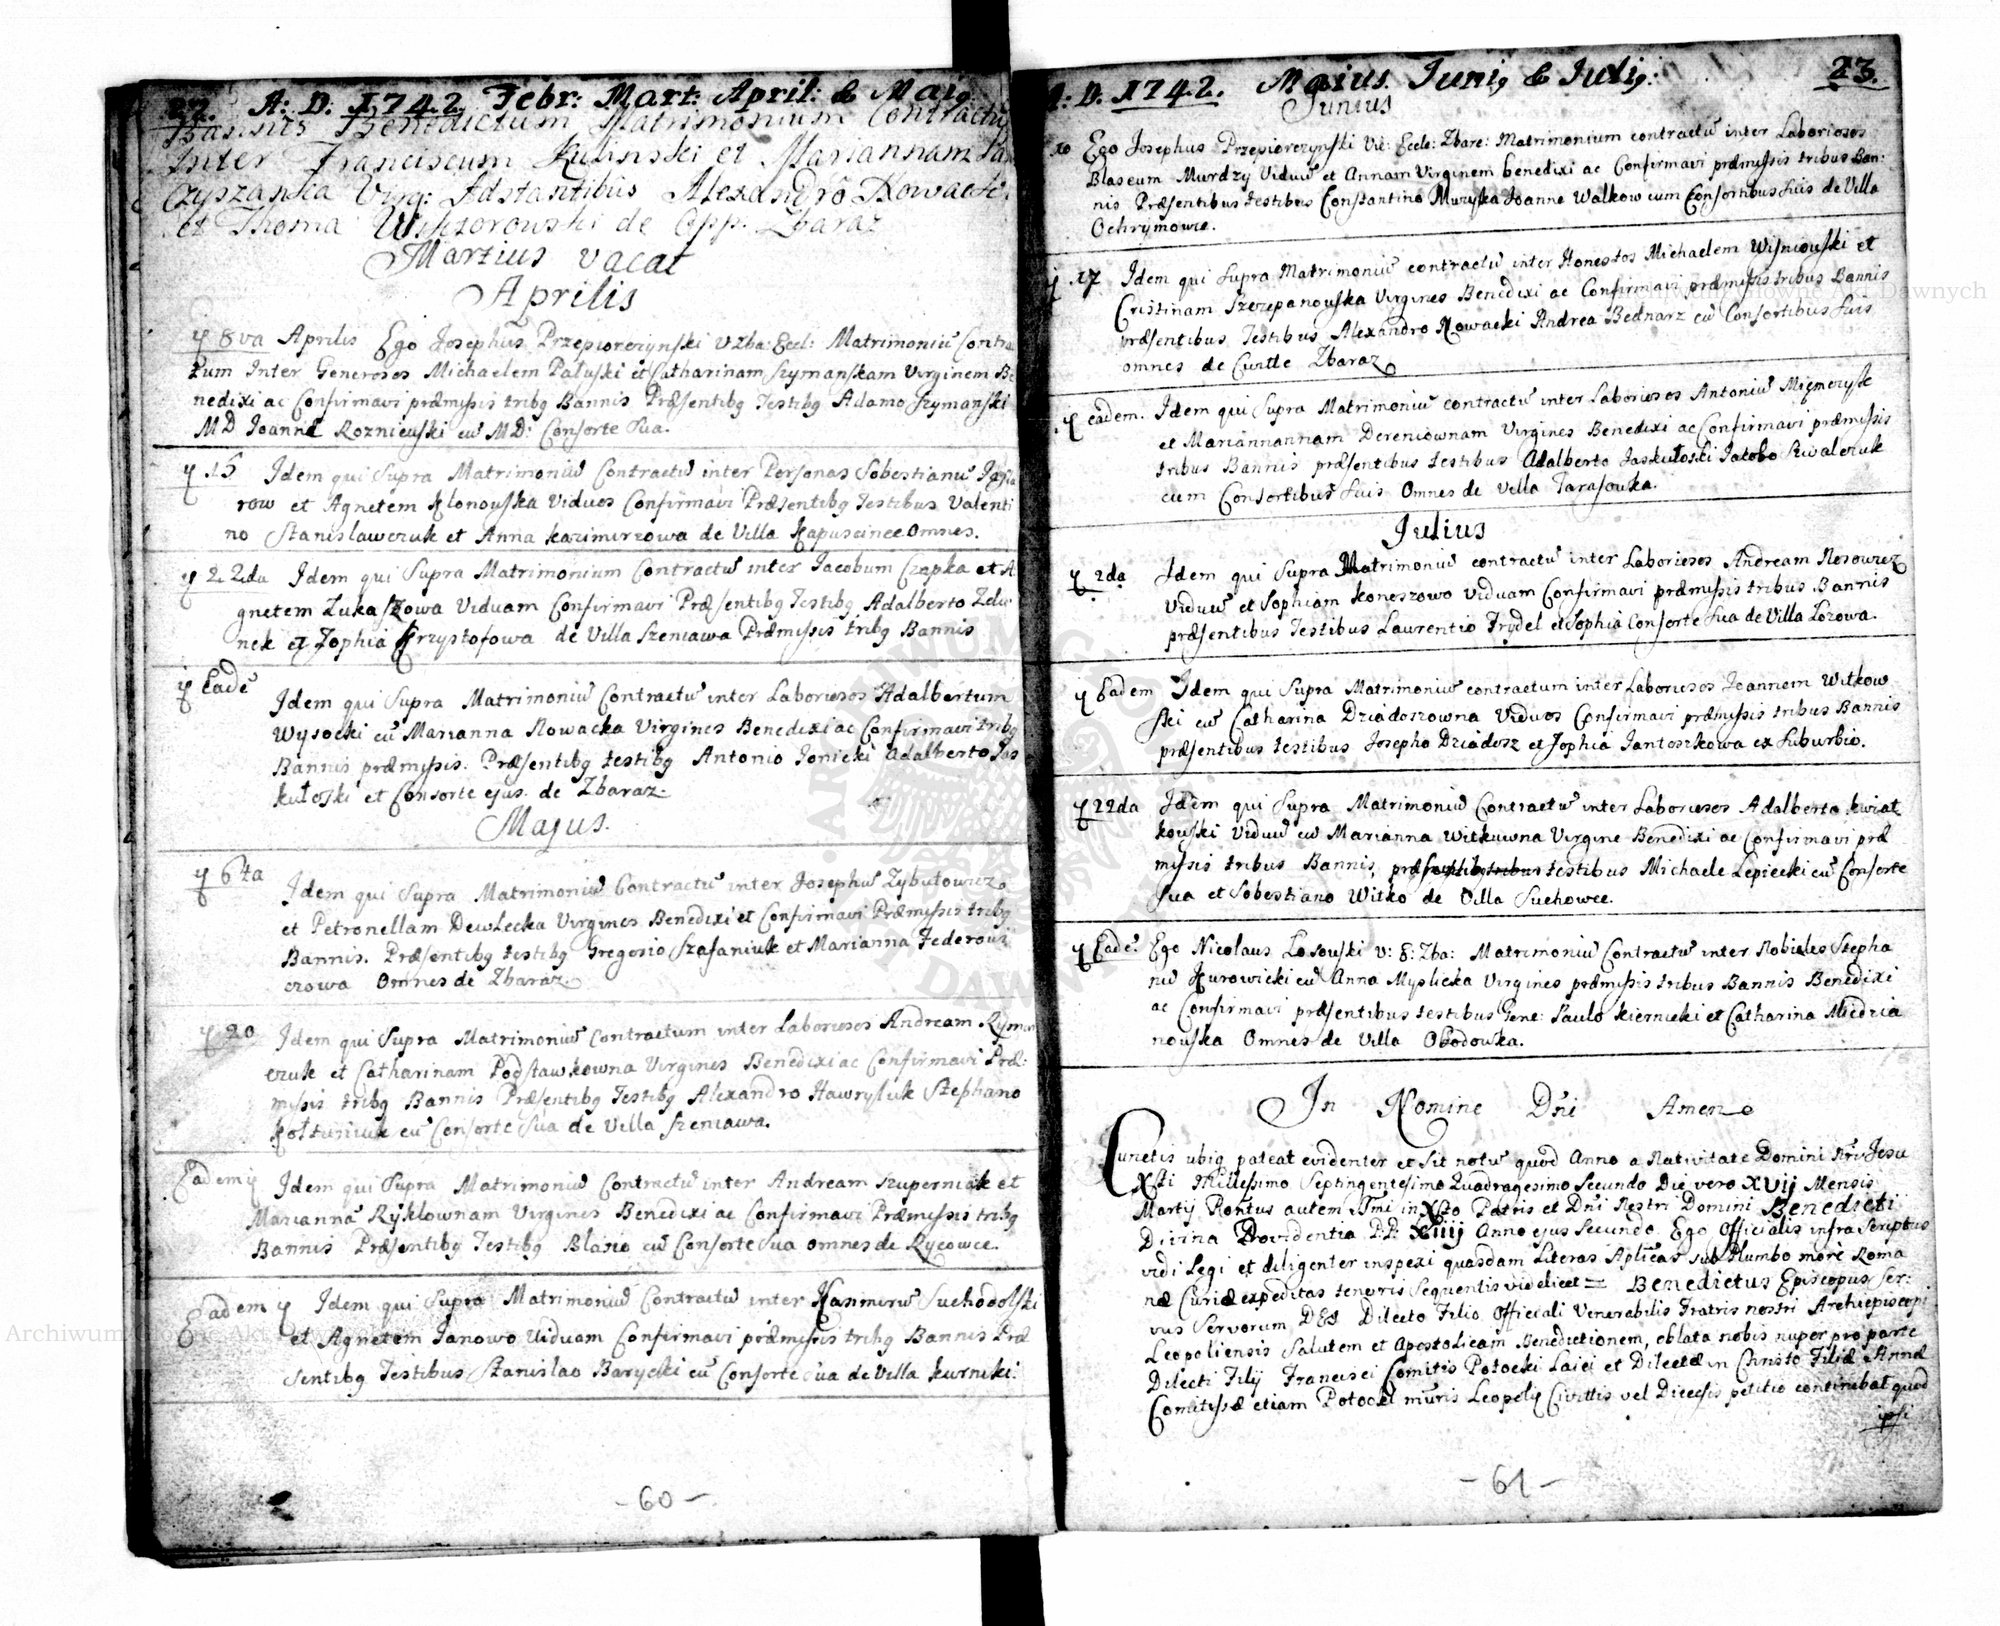 22. A: D: 1742. Febr: Mart: April: & Mai9
Bannis Benedictum Matrimonium Contractu
Inter Franciscum Kulinski et Mariannam
czyszanka Virg: Adstantibus Alexandro Nowacki
et Thoma de Opp. Zbaraz
Martius vacat
Aprilis
8va Aprilis Ego Josephus Przepiorczynski V Zba: Eccl: Matrimoniū Contra
tum Inter Generosos Michaelem Paluski et Catharinam Szymanskam Virginem Be
nedixi ac Confirmavi præmissis trib9 Bannis Præsentib9 Testib9 Adamo Szymanski
MD Joanne Rozniewski cū MD: Consorte Sua.
15 Idem qui Supra Matrimoniū Contractū inter Personas Sobestianū
row et Agnetem Klonowska Viduos Confirmavi Præsentib9 Testibus Valenti
no Stanislawczuk et Anna kazimirzowa de Villa Kapuscince Omnes.
22da Idem qui Supra Matrimonium Contractū inter Jacobum Czepka et A
gnetem Lukaszowa Viduam Confirmavi Præsentib9 Testib9 Adalberto Zelu
nek et Zophia Krzystofowa de Villa Szeniawa Præmissis trib9 Bannis
Eadē Idem qui Supra Matrimoniū Contractū inter Laboriosos Adalbertum
Wysocki cū Marianna Nowacka Virgines Benedixi ac Confirmavi trib9
Bannis præmissis. Præsentib9 testib9 Antonio Jonicki Adalberto Jas
kułoski et Consorte ejus. de Zbaraz.
Majus.
6ta Idem qui Supra Matrimoniū Contractū inter Josephū Zybułowicz
et Petronellam Dewlecka Virgines Benedixi et Confirmavi Præmissis trib9
Bannis. Præsentib9 testib9 Gregorio Szafaniuk et Marianna Federowi
czowa Omnes de Zbaraz.
20 Idem qui Supra Matrimoniū Contractum inter Laboriosos Andream Rymar
czuk et Catharinam Podstawkowna Virgines Benedixi ac Confirmavi Præ:
missis trib9 Bannis Præsentib9 Testib9 Alexandro Hawryluk Stephano
Kołtuniuk cū Consorte Sua de Villa Szeniawa.
Eadem Idem qui Supra Matrimoniū Contractū inter Andream Szuperniak et
Mariannā Ryklownam Virgines Benedixi ac Confirmavi Præmissis trib9
Bannis Præsentib9 Testib9 Blasio cū Consorte Sua omnes de Rycowce.
Eadem Idem qui Supra Matrimoniū Contractū inter Kasmirū Suchodolski
et Agnetem Janowo Viduam Confirmavi præmissis trib9 Bannis Præ
sentib9 Testibus Stanislao Barycki cū Consorte Sua de Villa kurniki:
- 60 -
A: D. 1742. Maius. Juni9 & Juli9: 23.
Junius
10 Ego Josephus Przepiorczynski Vic: Eccle: Zbare: Matrimonium contractū inter Laboriosos
Blaseum Murdzy Viduū et Annam Virginem benedixi ac Confirmavi præmissis tribus Ban:
nis Præsentibus testibus Constantino Muryska Joanne Walkow cum Consortibus Suis de Villa
Ochrymowce.
17 Idem qui Supra Matrimoniū contractū inter Honestos Michaelem Wisniouski et
Cristinam Szczepanouska Virgines Benedixi ac Confirmavi præmissis tribus Bannis
præsentibus Testibus Alexandro Nowacki Andrea Bednarz cū Consortibus Suis
omnes de Civtte Zbaraz
eadem. Idem qui Supra Matrimoniū contractū inter Laboriosos Antoniū
et Mariannannam Dereniownam Virgines Benedixi ac Confirmavi præmissis
tribus Bannis præsentibus testibus Adalberto Jaskułoski Jacobo Kwalczuk
cum Consortibus Suis Omnes de Villa Tarasouka.
Julius
2da Idem qui Supra Matrimoniū contractū inter Laboriosos Andream Nosowicz
Viduū et Sophiam Koneszowo Viduam Confirmavi præmissis tribus Bannis
præsentibus Testibus Laurentio Frydel et Sophia Consorte Sua de Villa Lozowa.
Eadem Idem qui Supra Matrimoniū contractum inter Laboriosos Joannem Witkow
ski cū Catharina Dziadoszowna Viduos Confirmavi præmissis tribus Bannis
præsentibus testibus Josepho Dziadosz et Zophia Jantoszkowa ex Suburbio.
22da Idem qui Supra Matrimoniū Contractū inter Laboriosos Adalberto kwiat
kouski Viduū cū Marianna Witkuwna Virgine Benedixi ac Confirmavi præ
missis tribus Bannis, testibus Michaele Lepiecki cū Consorte
Sua et Sobestiano Witko de Villa Suchowce.
Eadē Ego Nicolaus Losouski V: E: Zba: Matrimoniū Contractū inter Nobieles Stepha
nū Kurowicki cū Anna Myslicka Virgines præmissis tribus Bannis Benedixi
ac Confirmavi præsentibus testibus Gene: Paulo kiernicki et Catharina Miedzia
nouska Omnes de Villa Obodouka.
In Nomine Dñi Amen
Cunctis ubiq pateat evidenter et Sit notū quod Anno a Nativitate Domini Nri Jesu
Xsti Millessimo Septingentesimo Quadragesimo Secundo Die vero XVII Mensis
Martij Pontus autem Sñmi in Xsto Patris et Dñi Nestri Domini Benedicti
Divina Providentia PP: XIIIJ Anno ejus Secundo Ego Officialis infra Scriptus
vidi Legi et diligenter inspexi quasdam Literas Aplicas sub Plumbo more Roma
næ Curiæ expeditas tenoris Sequentis videlicet = Benedictus Episcopus Ser:
vus Servorum DEI Dilecto Filio Officiali Venerabilis Fratris nostri Archiepiscopi
Leopoliensis Salutem et Apostolicam Benedictionem, oblata nobis nuper pro parte
Dilecti Filij Francisci Comitis Potocki Laici et Dilectæ in Christo Filiæ Annæ
Comitissæ etiam Potockl mūris Leopolij Civittis vel Diecesis petitio continebat quod
ipsi
- 61 -
Archiwum Główne Akt Dawnych
Archiwum Główne Akt Dawnych
ARCHIWUM GŁÓWNE AKT DAWNYCH